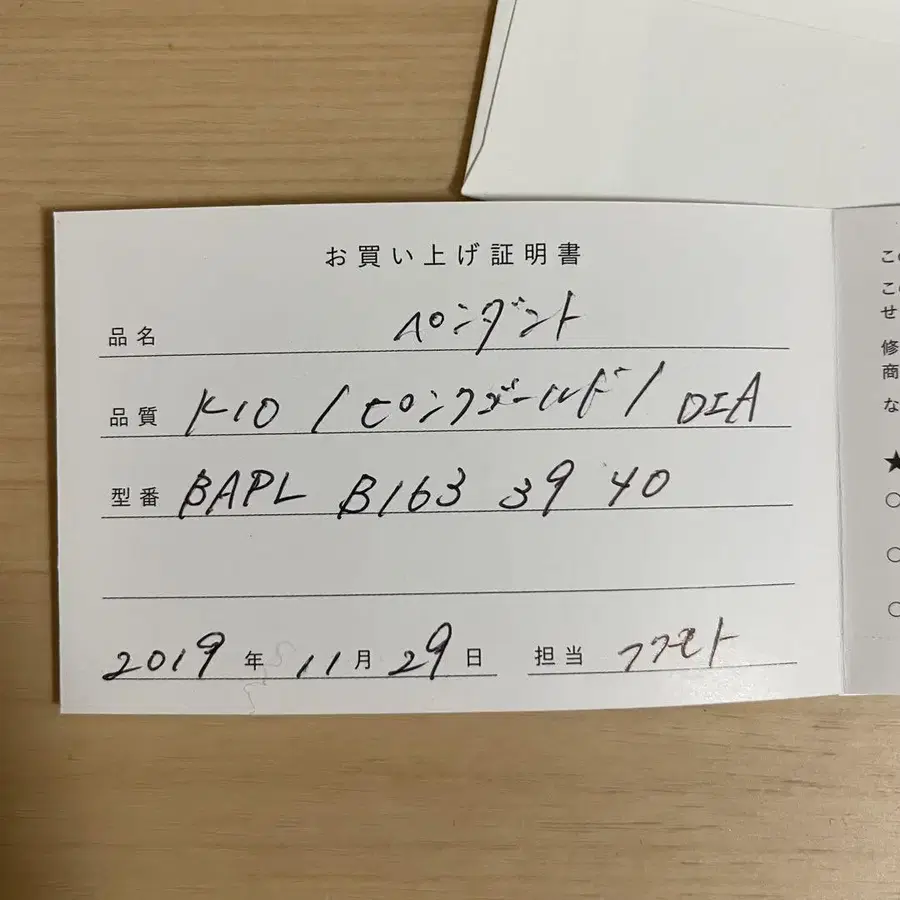 お買い上げ証明書
品名 ペンダント
品質 K10 / ピンクゴールド / DIA
型番 BAPL B163 39 40
2019 年 11 月 29 日 担当 フクモト
この
この
せ
修
商
な
★
○
○
○